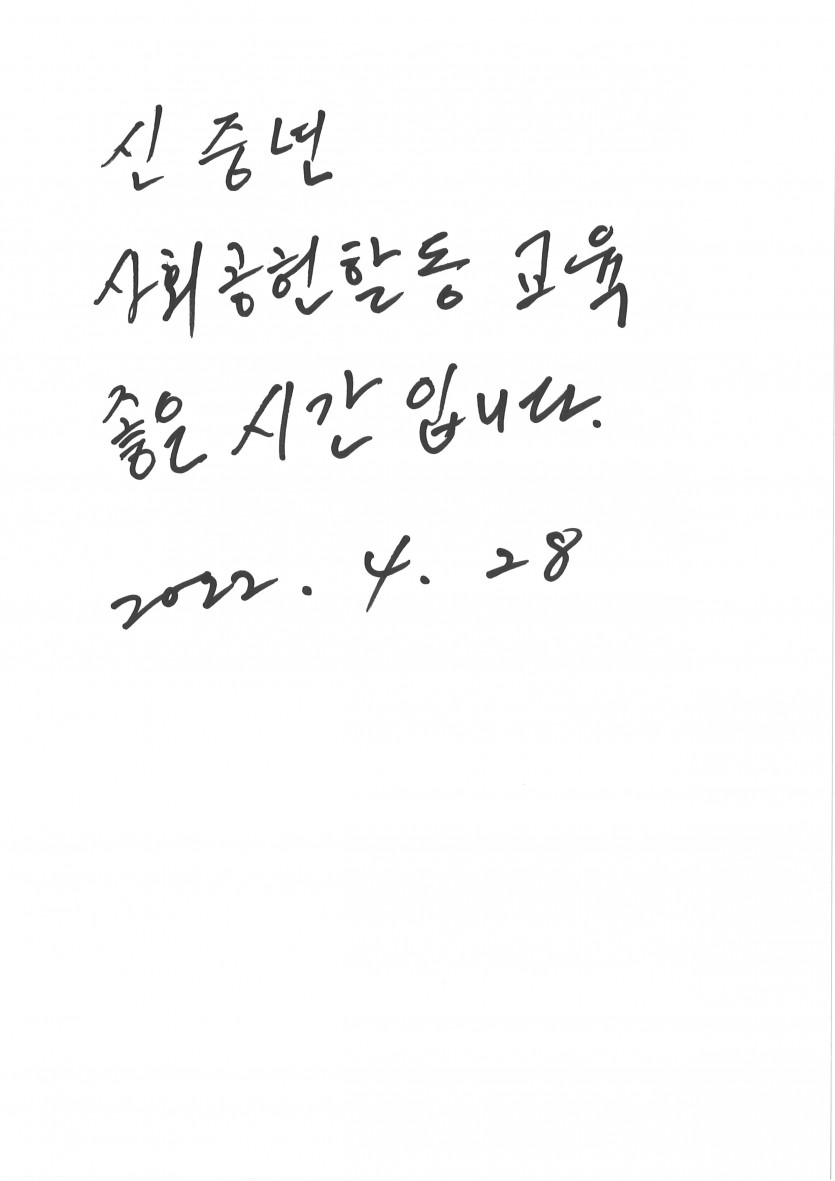 신 중년
사회공헌활동 교육
좋은 시간 입니다.
2022. 4. 28